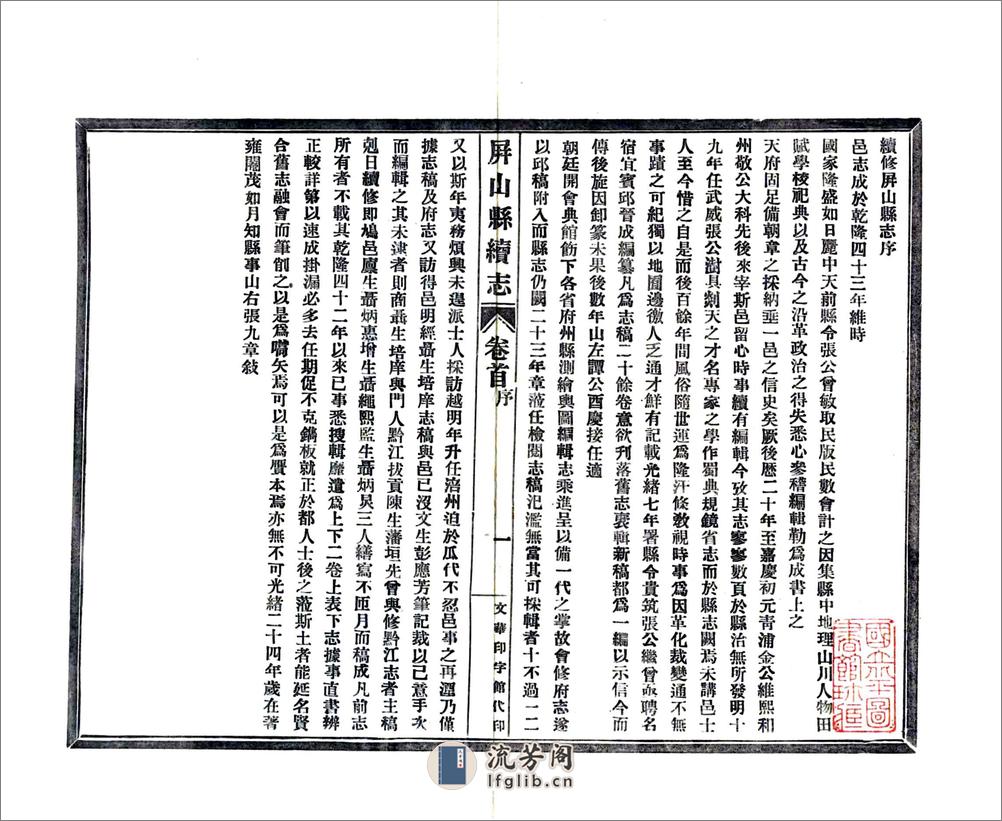 續修屏山縣志序
邑志成於乾隆四十三年維時
國家隆盛如日麗中天前縣令張公曾敏取民版民數會計之因集縣中地理山川人物田
賦學校祀典以及古今之沿革政治之得失悉心參稽編輯勒爲成書上之
天府固足備朝章之採納垂一邑之信史矣厥後歷二十年至嘉慶初元青浦金公維熙和
州敬公大科先後來宰斯邑留心時事續有編輯今攷其志寥寥數頁於縣治無所發明十
九年任武威張公澍具剗天之才名專家之學作蜀典規鏡省志而於縣志闕焉未講邑士
人至今惜之自是而後百餘年間風俗隨世運爲隆汙條敎視時事爲因革化裁變通不無
事蹟之可紀獨以地圄邊徼人乏通才鮮有記載光緒七年署縣令貴筑張公繼曾敂聘名
宿宜賓邱晉成編纂凡爲志稿二十餘卷意欲刋落舊志裒輯新稿都爲一編以示信今而
傳後旋因卸篆未果後數年山左譚公酉慶接任適
朝廷開會典館飭下各省府州縣測繪輿圖編輯志乘進呈以備一代之掌故會修府志遂
以邱稿附入而縣志仍闕二十三年章蒞任檢閱志稿汜濫無當其可採輯者十不過一二
屏山縣續志
卷首
序
一
文華印字館代印
又以斯年夷務煩興未遑派士人採訪越明年升任涪州迫於瓜代不忍邑事之再湮乃僅
據志稿及府志又訪得邑明經聶生培庠志稿與邑已沒文生彭應芳筆記裁以已意手次
而編輯之其未逮者則商聶生培庠與門人黔江拔貢陳生藩垣先曾與修黔江志者主稿
剋日續修即鳩邑廩生聶炳惠增生聶繩熙監生聶炳炅三人繕寫不匝月而稿成凡前志
所有者不載其乾隆四十二年以來已事悉搜輯靡遺爲上下二卷上表下志據事直書辨
正較詳第以速成掛漏必多去任期促不克鐫板就正於都人士後之蒞斯土者能延名賢
合舊志融會而筆削之以是爲嚆矢焉可以是爲贋本焉亦無不可光緒二十四年歲在著
雍閹茂如月知縣事山右張九章敍
流芳阁
lfglib.cn